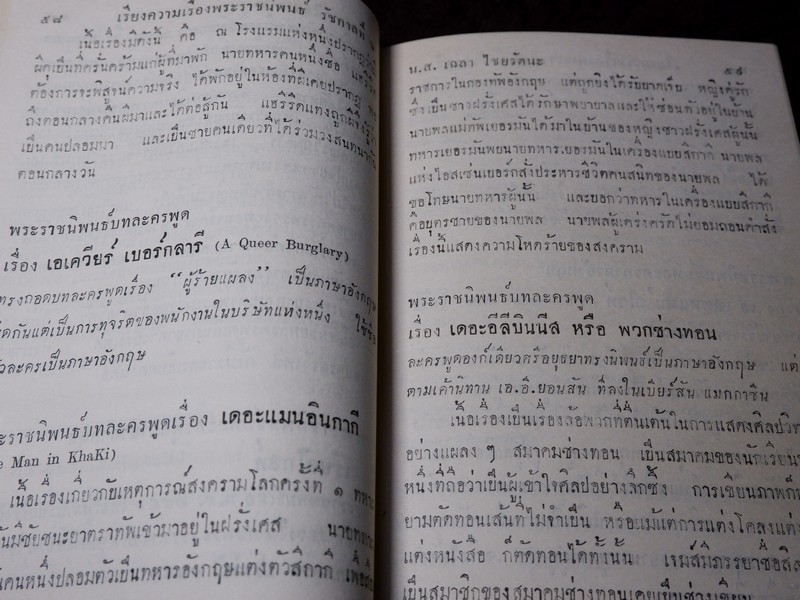 ๕๘ เรียงความเรื่องพระราชนิพนธ์ รัชกาลที่
เนื้อเรื่องมีดังนี้ คือ ณ โรงแรมแห่งหนึ่งปรากฏ
ผีดุเป็นที่ครั่นคร้ามแก่ผู้ที่มาพัก นายทหารคนหนึ่งชื่อ
ต้องการจะพิสูจน์ความจริง ได้พักอยู่ในห้องที่ผีเคยปรากฏ
ถึงตอนกลางคืนผีมาและได้ต่อสู้กัน แฮริรีดแทงถูกผีจึงรู้
เป็นคนปลอมมา และเป็นชายคนเดียวที่ได้ร่วมวงสนทนากัน
ตอนกลางวัน
พระราชนิพนธ์บทละครพูด
เรื่อง เอเควียร์ เบอร์กลารี (A Queer Burglary)
ทรงถอดบทละครพูดเรื่อง “ผู้ร้ายแผลง” เป็นภาษาอังกฤษ
กันแต่เป็นการทุจริตของพนักงานในบริษัทแห่งหนึ่ง ใช้ชื่อ
ละครเป็นภาษาอังกฤษ
ราชนิพนธ์บทละครพูดเรื่อง เดอะแมนอินกากี
Man in KhaKi)
เนื้อเรื่องเกี่ยวกับเหตุการณ์สงครามโลกครั้งที่ ๑
มีชัยชนะยาตราทัพเข้ามาอยู่ในฝรั่งเศส
คนหนึ่งปลอมตัวเป็นทหารอังกฤษแต่งตัวสีกากี
น.ส. เฉลา ไชยรัตนะ ๕๙
ราชการในกองทัพอังกฤษ แต่ถูกยิงได้รับบาดเจ็บ หญิงคู่รัก
ซึ่งเป็นชาวฝรั่งเศสได้รักษาพยาบาลและให้ซ่อนตัวอยู่ในบ้าน
นายพลแม่ทัพเยอรมันได้มาในบ้านของหญิงชาวฝรั่งเศสผู้นั้น
ทหารเยอรมันพบนายทหารเยอรมันในเครื่องแบบสีกากี นายพล
แห่งไอสเซ่นเยอร์กสั่งประหารชีวิตคนสนิทของนายพล ได้
ขอโทษนายทหารผู้นั้น และบอกว่าทหารในเครื่องแบบสีกากี
คือบุตรชายของนายพล นายพลผู้เคร่งครัดไม่ยอมถอนคำสั่ง
เรื่องนี้แสดงความโหดร้ายของสงคราม
พระราชนิพนธ์บทละครพูด
เรื่อง เดอะอีลีบินนีส หรือ พวกช่างทอน
ละครพูดองก์เดียวศรีอยุธยาทรงนิพนธ์เป็นภาษาอังกฤษ แต่
ตามเค้านิทาน เอ.อี.ยอนสัน ที่ลงในเปียร์สัน แมกกาซิน
เนื้อเรื่องเป็นเรื่องล้อพวกที่ตื่นเต้นในการแสดงศิลปวิท
อย่างแผลง ๆ สมาคมช่างทอน เป็นสมาคมของนักเรียน
หนึ่งที่ถือว่าเป็นผู้เข้าใจศิลปอย่างลึกซึ้ง การเขียนภาพก็
ยามตัดทอนเส้นที่ไม่จำเป็น หรือแม้แต่การแต่งโคลง
แต่งหนังสือ ก็ตัดทอนได้ทั้งนั้น เจมส์มีภรรยาชื่อ
เป็นสมาชิกของสมาคมช่างทอนเคยเป็นช่างเขียน